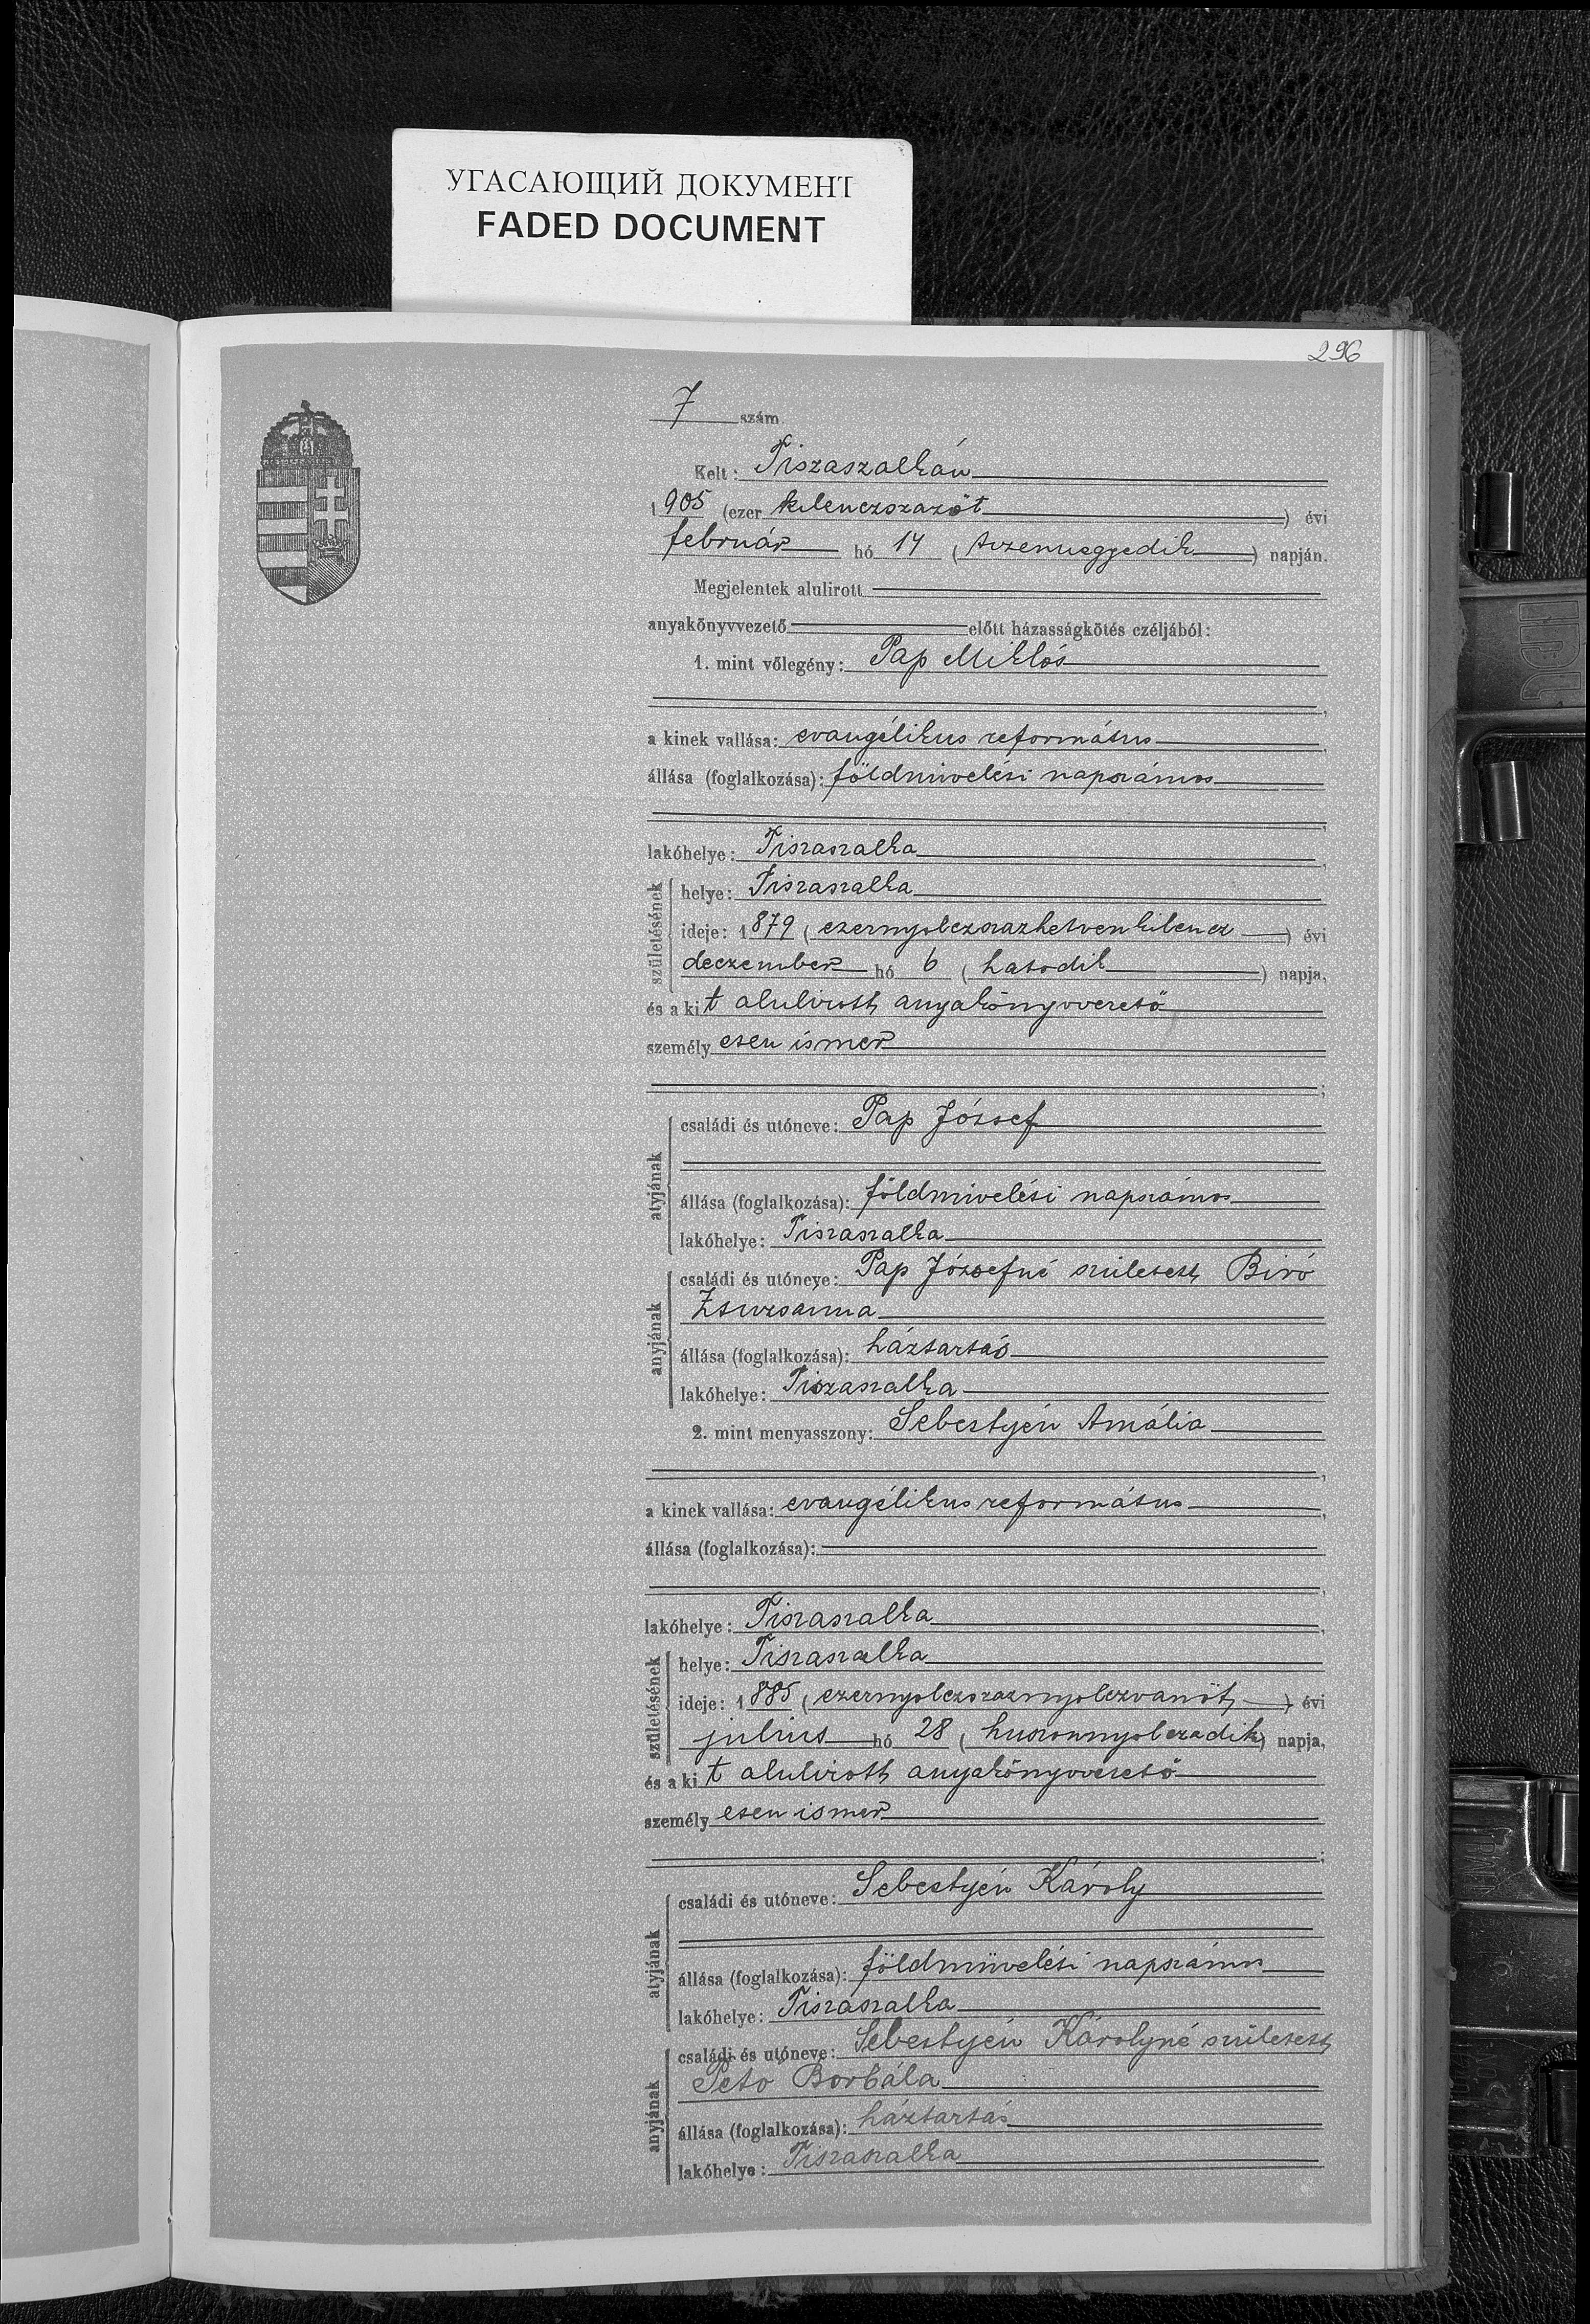 УГАСАЮЩИЙ ДОКУМЕНТ
FADED DOCUMENT
296
7 szám
Kelt: Tiszaszalkán
1905 (ezer kilenczszazöt) évi
február hó 14 (tizennegyedik) napján.
Megjelentek alulirott
anyakönyvvezető előtt házasságkötés czéljából:
1. mint vőlegény: Pap Miklós
a kinek vallása: evangélikus református
állása (foglalkozása): földmivelési napszámos
lakóhelye: Tiszaszalka
születésének
helye: Tiszaszalka
ideje: 1879 (ezernyolczszazhetvenkilencz) évi
deczember hó 6 (hatodik) napja,
és a kit alulirott anyakönyvvezető
személyesen ismer
atyjának
családi és utóneve: Pap József
állása (foglalkozása): földmivelési napszámos
lakóhelye: Tiszaszalka
anyjának
családi és utóneve: Pap Józsefné született Biró
Zsuzsánna
állása (foglalkozása): háztartás
lakóhelye: Tiszaszalka
2. mint menyasszony: Sebestyén Amália
a kinek vallása: evangélikus református
állása (foglalkozása):
lakóhelye: Tiszaszalka
születésének
helye: Tiszaszalka
ideje: 1885 (ezernyolczszaznyolczvanöt) évi
julius hó 28 (huszonnyolczadik) napja,
és a kit alulirott anyakönyvvezető
személyesen ismer
atyjának
családi és utóneve: Sebestyén Károly
állása (foglalkozása): földmüvelési napszámos
lakóhelye: Tiszaszalka
anyjának
családi és utóneve: Sebestyén Károlyné született
Pető Borbála
állása (foglalkozása): háztartás
lakóhelye: Tiszaszalka